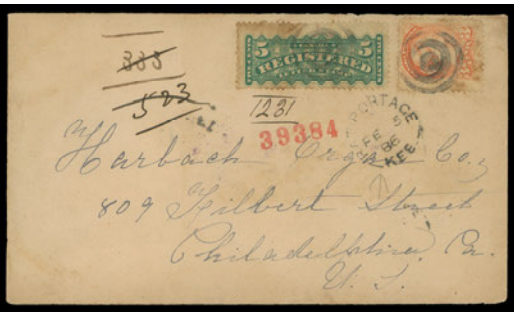 333
523
5 REGISTERED
1231
39384
PORTAGE
FE 5
86
Harbach Organ Co.,
809 Filbert Street
Philadelphia Pa.
U. S.